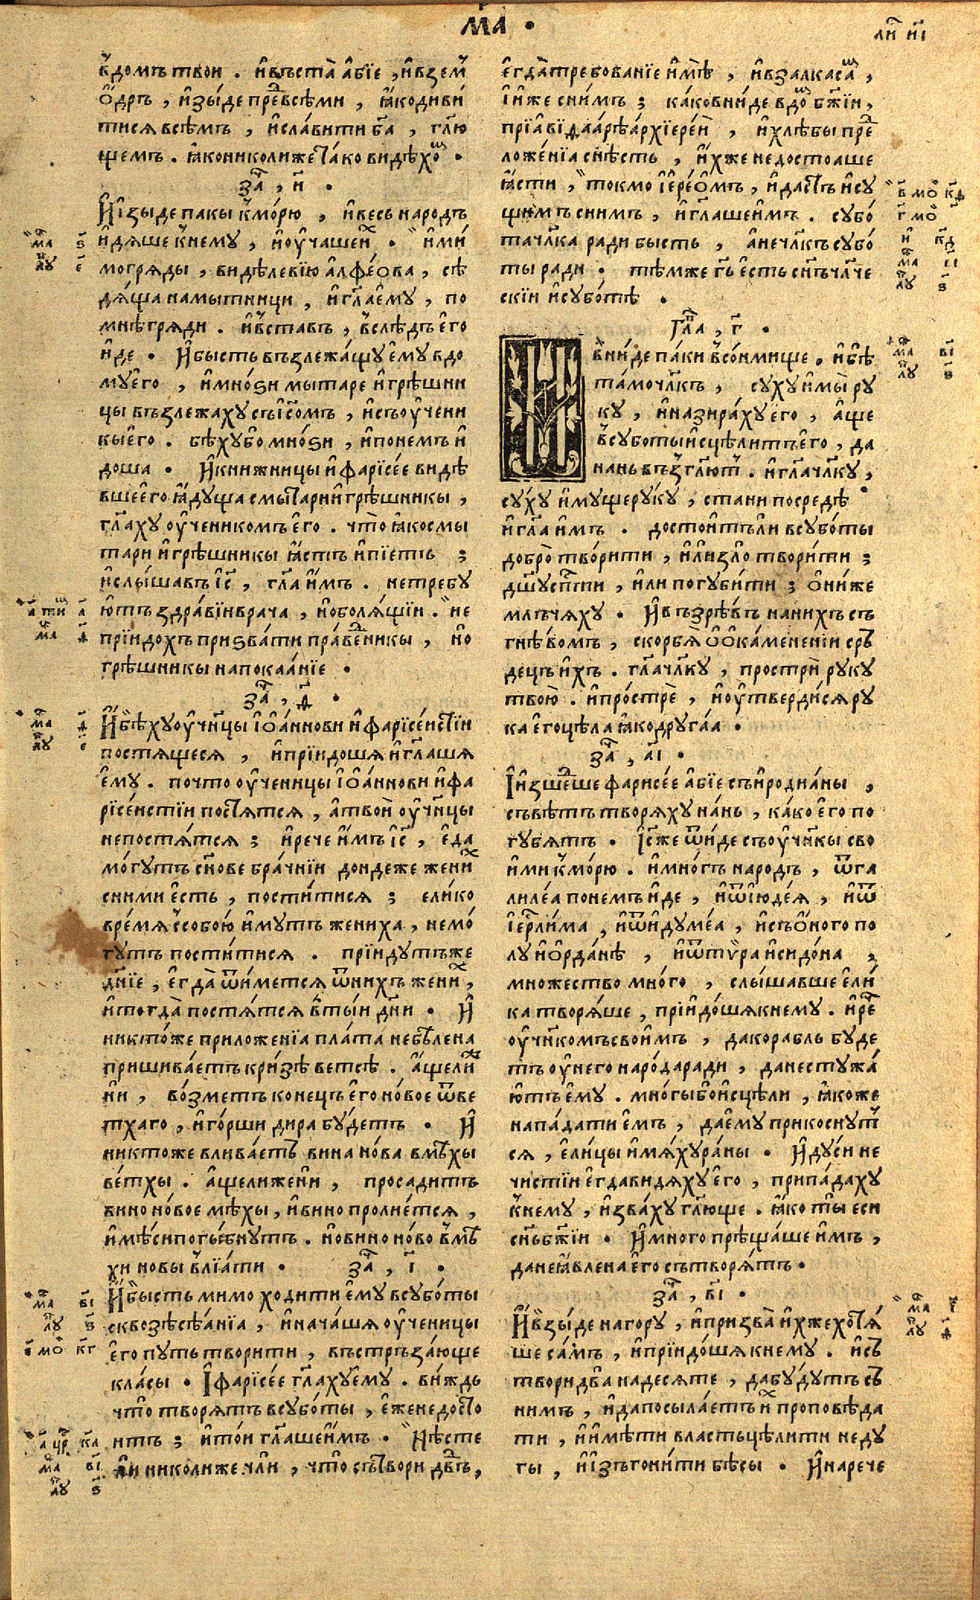 м҃а ·
ли́ и҃і
в̾домъ твои . и҆въста̀ а҆бїе , и҆взем̾
ѻ҆́дръ , и҆зы́де пре́д̾всѣми , ꙗ҆кодиви́
тися всѣмъ , и҆сла́вити б҃а , гл҃ю
щемъ . ꙗ҆кониколиже та́ко видѣхо́м ·
за́ , и҃ .
И҆ изы́де пакы к̾мо́рю , и҆весь народъ
и҆дя́ше к̾нему , и҆ѹ҆ча́шеи҆х · и҆ми́
могряды , ви́дѣ левїю а҆лфе́ѻва , сѣ
дя́ща намытници , и҆гл҃а е҆му , по
мнѣ гряди . и҆в̾ставъ , в̾слѣдъ е҆го
и҆де · И҆бысть възлежа́щу е҆му вдо
му е҆го , и҆мно́ѕи мытаре и҆грѣшни
цы възлежаху съі҆с҃омъ , и҆съѹ҆чени
кы е҆го . бѣху бо мно́ѕи , и҆понемъ и҆
доша · И҆книжницы и҆фарїсе́е видѣ
вше е҆го ꙗ҆дуща смы́тари и҆грѣшникы ,
гл҃аху ѹ҆ченикомъ е҆го . что̀ ꙗ҆ко смы
тари и҆грѣшникы ꙗ҆стъ и҆пїетъ ;
и҆слы́шавъ і҆с҃ , гл҃а и҆мъ . нетребу
ютъ здра́вїи врача , но болящїи . не
прїидохъ призва́ти пра́веникы , но
грѣшникы напокаа́нїе .
за́ , ѳ҃ .
И҆бѣ́ху ѹ҆чн҃цы і҆ѻа́ннови и҆фарїсе́йстїи
постящеся , и҆прїидоша и҆гл҃аша
е҆му . почто ѹ҆ченицы і҆ѻа́ннови и҆фа
рїсе́истїи постятся , а҆твои ѹ҆чн҃цы
непостятся ; и҆рече и҆мъ і҆с҃ , е҆да
мо́гутъ сн҃ове бра́чнїи дондеже жени́х
сними е҆сть , пости́тися ; е҆лико
вре́мя с̾собою и҆мутъ жениха , немо́
гутъ пости́тися . прїидутъже
дн҃їе , е҆гда̀ ѿи́метсѧ ѿнихъ жени́х ,
и҆тогда̀ постятся в̾тыи дн҃и · И҆
никто́же приложенїа пла́та небѣлена
пришива́етъ кри́зѣ ветсѣ . а҆щели́ж
ни , во́зметъ конецъ е҆го но́вое ѿве
тхаго , и҆го́рши дира бу́детъ · И҆
никтоже влива́етъ вина но́ва вмѣ́хы
ве́тхы . а҆щелиже́ни , проса́дитъ
вино но́вое мѣхы , и҆вино пролїется ,
и҆мѣси погы́бнутъ . новино но́во вмѣ́
хи новы в̾лїа́ти · за́ , і҃ .
И҆бысть мимо ходи́ти е҆му всубо́ты
сквозѣсѣа́нїа , и҆нача́ша ѹ҆ченицы
е҆го путь твори́ти , въстръза́юще
кла́сы · І҆фарїсе́е гл҃аху е҆му . ви́ждь
что̀ творятъ всубо́ты , е҆же недосто
итъ ; и҆то́и гл҃аше и҆мъ · Нѣсте
ли николиже чли , что̀ сътвори дв҃дъ ,
е҆гда̀ требованїе и҆мѣ̀ , и҆взалкася ,
і҆и҆же сни́мъ ; ка́ко вни́де вдо́м бж҃їи ,
прїа́вїаѳа́рѣ а҆рхїере́и , и҆хлѣ́бы пре́д
ложе́нїа снѣсть , и҆хже недостоаше
ꙗ҆сти , токмо і҆ере́ѻмъ , и҆дасть и҆су
щимъ сни́мъ , и҆гл҃аше и҆мъ . субо́
та чл҃ка ради бысть , а҆нечл҃къ субо́
ты ради · тѣмже гь҃ е҆сть сн҃ъ чл҃че
скїи и҆субо́тѣ ·
Гла́ , г҃ ·
И҆вни́де па́ки в̾со́нмище , и҆бѣ
та́мо чл҃къ , су́ху и҆мы ру
ку , и҆назира́ху е҆го , а҆ще
в̾суботы и҆сцѣлитъ е҆го , да
нань възгл҃ют . и҆гл҃а чл҃ку ,
су́ху и҆мущеруку , стани посредѣ
и҆гл҃а и҆мъ . достои́тъли всубо́ты
добро̀ твори́ти , и҆лизло̀ твори́ти ;
дш҃у сп҃сти , и҆ли погуби́ти ; ѻ҆ни́же
млъча́ху · И҆възрѣ́въ нани́хъ съ
гнѣ́вомъ , скорбя́ ѻ҆ѻкамененїи срь҃
децъ и҆хъ . гл҃а чл҃ку , прострѝ руку
твою . и҆про́стре , и҆ѹ҆тверди́ся ру
ка е҆го цѣла ꙗ҆ко друга́а ·
за́ , а҃і ·
І҆изше́дше фарисе́е а҆бїе съи҆родиа́ны ,
съвѣ́тъ творя́ху нань , ка́ко е҆го по
губятъ · І҆с҃же ѿи́де съѹ҆чн҃кы сво
и҆ми к̾мо́рю . и҆мно́гъ наро́дъ , ѿга
лиле́а понемъ и҆де , и҆ѿі҆юде́я , и҆ѿ
і҆ерл҃и́ма , и҆ѿи҆думе́а , и҆съѻ҆́ного по
лу и҆ѻ҆рда́нѣ , и҆ѿтѵ́ра и҆сидо́на ,
мно́жество мно́го , слы́шавше е҆ли́
ка творя́ше , прїидо́ша кнему . и҆ре́ч
ѹ҆чн҃комъ свои́мъ , да кора́бль буде
тъ ѹ҆него наро́да ради , да нестужа́
ютъ е҆му . мно́гы бо и҆сцѣли , ꙗ҆коже
напа́дати е҆мъ , да е҆му прикоснут
ся , е҆ли́цы и҆мя́ху ра́ны · И҆ду́си не
чи́стїи е҆гда ви́дяху е҆го , припа́даху
к̾нему , и҆зва́ху гл҃юще . ꙗ҆ко ты еси
сн҃ъ бж҃їи · И҆мно́го прѣща́ше и҆мъ ,
да неꙗ҆влена е҆го сътворя́тъ ·
за́ , в҃і ·
И҆взы́де на гору , и҆призва̀ и҆хже хотя́
ше са́мъ , и҆прїидо́ша кнему . и҆сь
твори два надесяте , да бу́дутъ съ
нимъ , и҆да посыла́етъ и҆х проповѣ́да
ти , и҆и҆мѣти власть цѣлити неду
гы , и҆и҆зъгони́ти бѣ́сы · И҆нарече